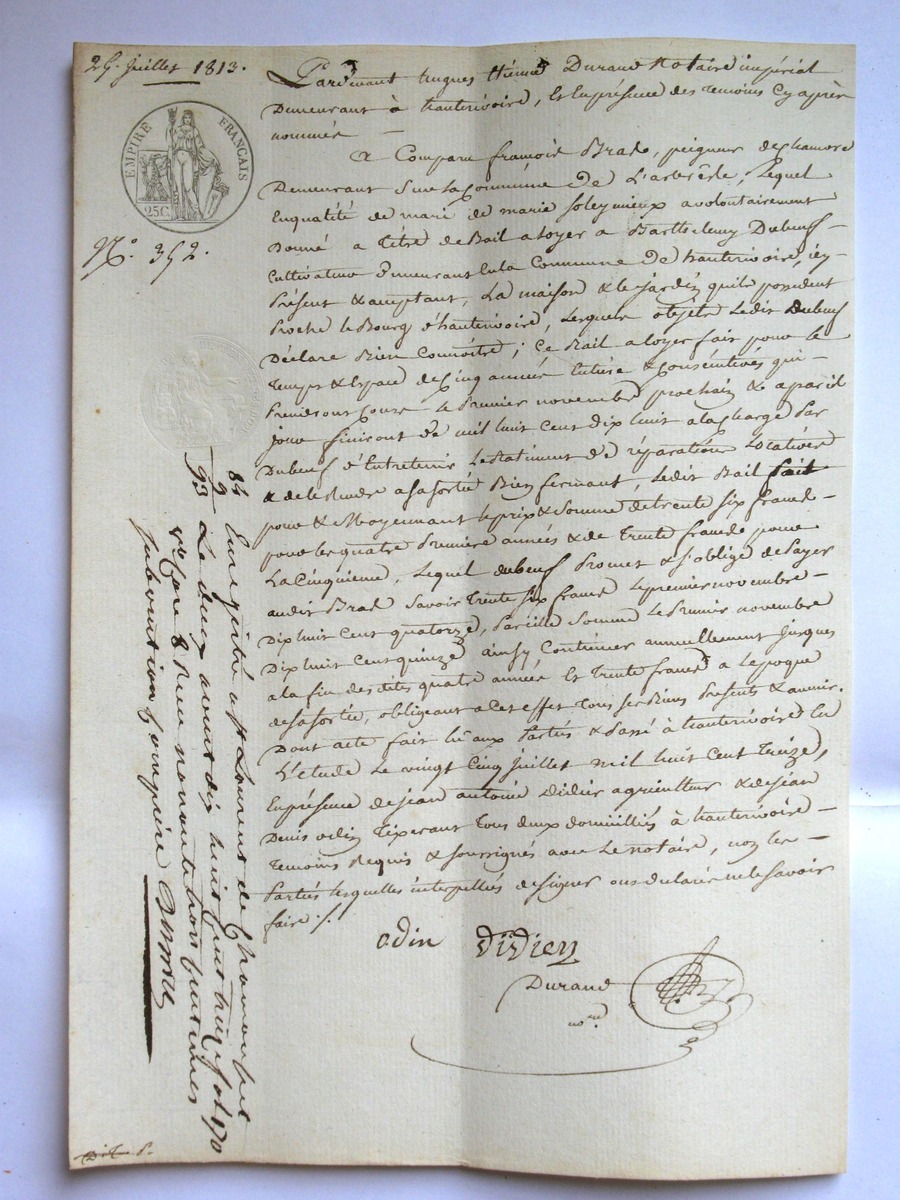 25. Juillet 1813.
EMPIRE FRANÇAIS
25C.
N.° 352.
Pardevant hugues Etienne Durand Notaire impérial
Demeurant à hauterivoire, Et En présence des Temoins Cy après
nommés —
A Comparu françois Brad, peigneur de Chanvre
Demeurant Sur La Commune De L'arbrêsle, Lequel
En qualité de mari de marie Soleymieux a volontairement
Donné a Titre de Bail a Loyer a Barthelemy Dubeuf
Cultivateur Demeurant En la Commune De hauterivoire, icy
Présent & acceptant, La maison & le jardin qu'ils possedent
Proche le Bourg d'hauterivoire, Lesquels objets Ledit Dubeuf
Déclare Bien Connoitre; Ce Bail a loyer fait pour le
Temps & Espace de Cinq années Entieres & Consécutives qui
Prendront Cours le Premier novembre prochain & a pareil
jour finiront De mil huit Cent Dix huit a la Charge Par
Dubeuf d'Entretenir Le Batiment De réparations Locatives
& de le Rendre a sa Sortie Bien fermant, Ledit Bail fait
pour & Moyennant le prix & Somme de trente Six francs
pour les quatre Premieres années & de Trente francs pour
La Cinquieme, Lequel dubeuf Promet & S'oblige de Payer
audit Brad Savoir Trente Six francs Le premier novembre
Dix huit Cent quatorze, Pareille Somme Le Premier novembre
Dix huit Cent quinze ainsy Continuer annuellement Jusques
a la fin des dites quatre années Et Trente francs a L'epoque
de sa Sortie, obligeant a Cet effet Tous Ses Biens Presents & avenir.
Dont acte fait Lû aux Parties & Passé à hauterivoire En
L'étude Le vingt Cinq Juillet mil huit Cent Treize,
En présence de jean antoine Didier agriculteur & de jean
Denis odin Tixerant Tous deux domiciliés à hauterivoire
Temoins Requis & Soussignés avec Le notaire, non les
Parties Lesquelles interpellées de Signer ont declaré ne le Savoir
faire ./.
odin Didier
Durand
no.re
84
9
93
Enregistré à St Laurent de Chamousset
Le deux aout dix huit cent treize fol 170
8 Reçu
Subvention Comprise